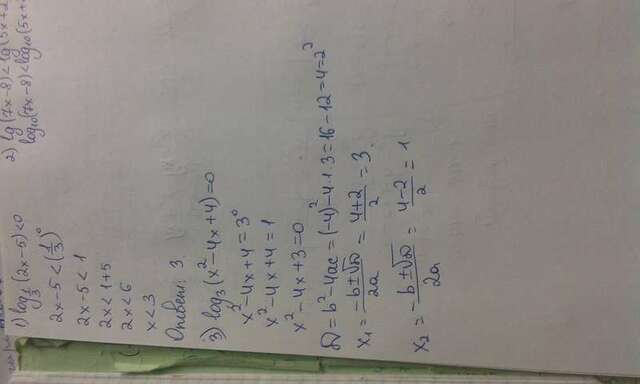 1) log_{1/3} (2x-5) < 0
2x-5 < (1/3)^0
2x-5 < 1
2x < 1+5
2x < 6
x < 3
Ответ: 3
2) lg(7x-8) < lg(5x+2
log_{10}(7x-8) < log_{10}(5x+
3) log_3 (x^2-4x+4) = 0
x^2-4x+4 = 3^0
x^2-4x+4 = 1
x^2-4x+3 = 0
D = b^2-4ac = (-4)^2-4·1·3 = 16-12 = 4 = 2^2
x_1 = (-b±√D)/2a = (4+2)/2 = 3.
x_2 = (-b±√D)/2a = (4-2)/2 = 1